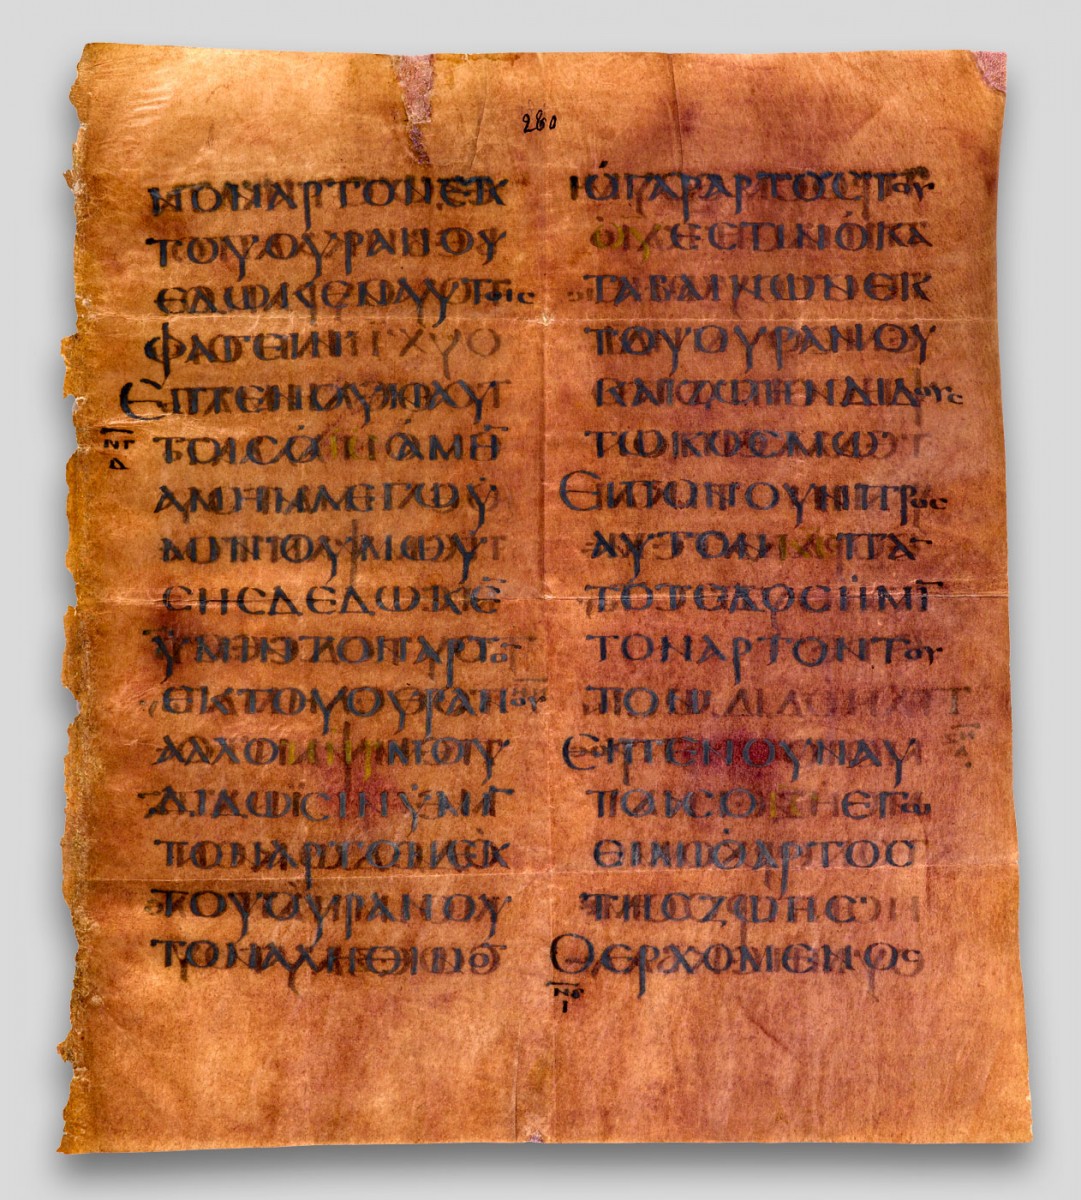 280
ΝΟΝΑΡΤΟΝΕΚ
ΤΟΥΟΥΡΑΝΟΥ
ΕΔΩΚΕΝΑΥΤΟΙϹ
ΦΑΓΕΙΝ
ΕΙΠΕΝΟΥΝΑΥ
ΤΟΙϹΟΙϹΑΜΗ̅
ΑΜΗΝΛΕΓΩΫ
ΜΙΝΟΥΜΩΥ
ϹΗϹΔΕΔΩΚΕ̅
ΫΜΙΝΤΟΝΑΡΤΟ̅
ΕΚΤΟΥΟΥΡΑΝΟΥ
ΑΛΛΟΠΗΡΜΟΥ
ΔΙΔΩϹΙΝΫΜΙ̅
ΤΟΝΑΡΤΟΝΕΚ
ΤΟΥΟΥΡΑΝΟΥ
ΤΟΝΑΛΗΘΙΝΟ̅
ΟΓΑΡΑΡΤΟϹΤΟΥ
ΘΥΕϹΤΙΝΟΚΑ
ΤΑΒΑΙΝΩΝΕΚ
ΤΟΥΟΥΡΑΝΟΥ
ΚΑΙΖΩΗΝΔΙΔΟΥϹ
ΤΩΚΟϹΜΩ
ΕΙΠΟΝΟΥΝΠΡΟϹ
ΑΥΤΟΝΚΕΠΑ̅
ΤΟΤΕΔΟϹΗΜΙ̅
ΤΟΝΑΡΤΟΝΤΟΥ
ΤΟΝ
ΕΙΠΕΝΟΥΝΑΥ
ΤΟΙϹΟΙϹΕΓΩ
ΕΙΜΙΟΑΡΤΟϹ
ΤΗϹΖΩΗϹ
ΟΕΡΧΟΜΕΝΟϹ